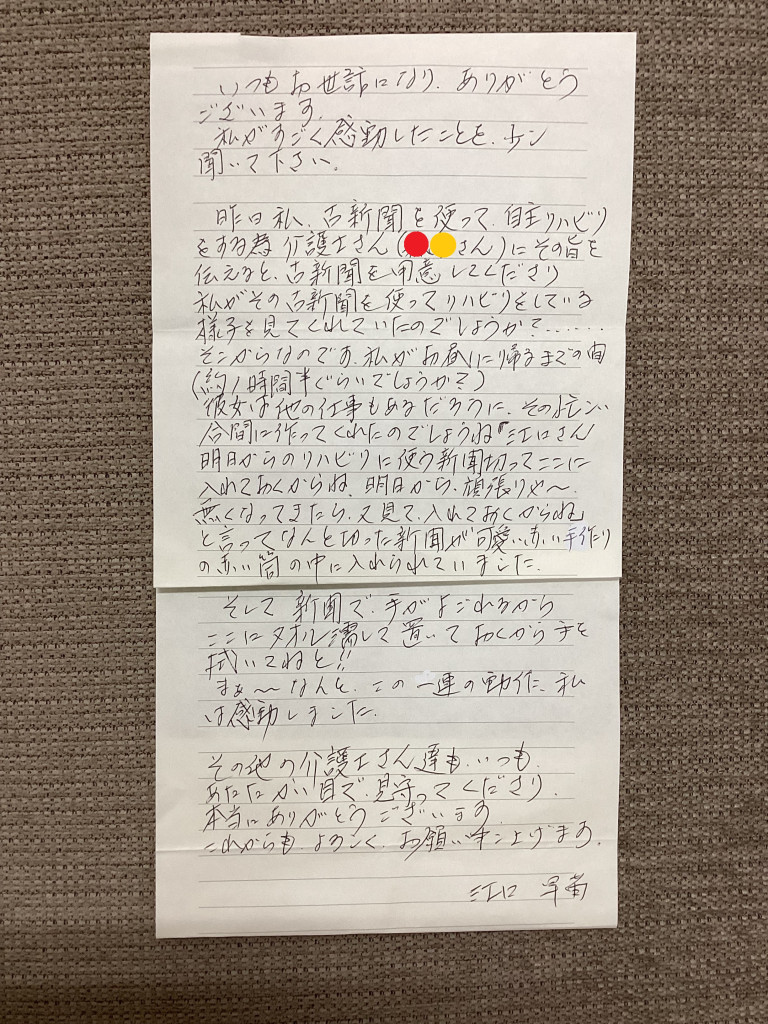 いつもお世話になり、ありがとう
ございます。
私がすごく感動したことを、少し
聞いて下さい。
昨日私、古新聞を使って、自主リハビリ
をする為介護士さん(さん)にその旨を
伝えると、古新聞を用意してくださり
私がその古新聞を使ってリハビリをしている
様子を見てくれていたのでしょうか?......
そこからなのです、私がお昼に帰るまでの間
(約1時間半ぐらいでしょうか?)
彼女は他の仕事もあるだろうに、その忙しい
合間に作ってくれたのでしょうね「江口さん
明日からのリハビリに使う新聞切ってここに
入れておくからね、明日から、頑張りや〜、
無くなってきたら、又見て、入れておくからね」
と言ってなんと切った新聞が可愛い赤い手作り
の赤い筒の中に入れられていました。
そして新聞で、手がよごれるから
ここにタオル濡して置いておくから手を
拭いてねと!!
まぁ〜なんと、この一連の動作、私
は感動しました。
その他の介護士さん達も、いつも、
あたたかい目で、見守ってくださり、
本当にありがとうございます。
これからも、よろしく、お願い申し上げます。
江口